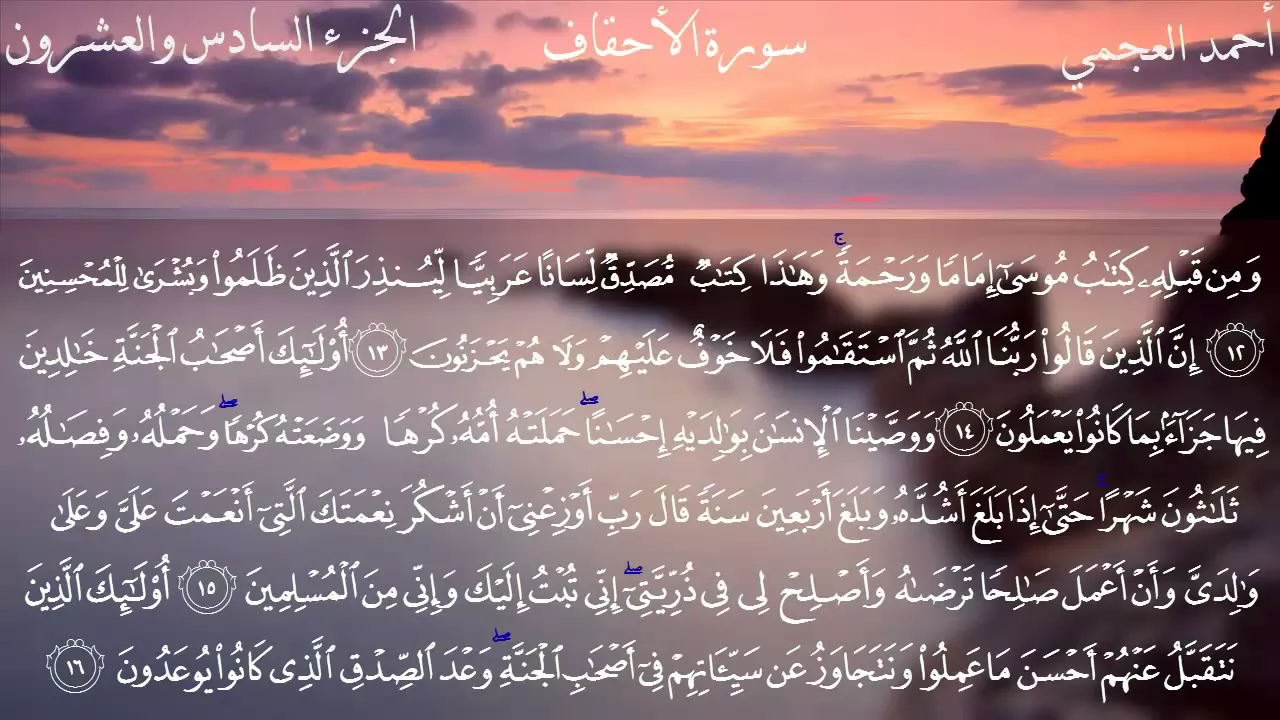 أحمد العجمي سورة الأحقاف الجزء السادس والعشرون
وَمِن قَبْلِهِۦ كِتَٰبُ مُوسَىٰٓ إِمَامًا وَرَحْمَةً ۚ وَهَٰذَا كِتَٰبٌ مُّصَدِّقٌ لِّسَانًا عَرَبِيًّا لِّيُنذِرَ ٱلَّذِينَ ظَلَمُوا۟ وَبُشْرَىٰ لِلْمُحْسِنِينَ
﴿١٢﴾ إِنَّ ٱلَّذِينَ قَالُوا۟ رَبُّنَا ٱللَّهُ ثُمَّ ٱسْتَقَٰمُوا۟ فَلَا خَوْفٌ عَلَيْهِمْ وَلَا هُمْ يَحْزَنُونَ ﴿١٣﴾ أُو۟لَٰٓئِكَ أَصْحَٰبُ ٱلْجَنَّةِ خَٰلِدِينَ
فِيهَا جَزَآءًۢ بِمَا كَانُوا۟ يَعْمَلُونَ ﴿١٤﴾ وَوَصَّيْنَا ٱلْإِنسَٰنَ بِوَٰلِدَيْهِ إِحْسَٰنًا ۖ حَمَلَتْهُ أُمُّهُۥ كُرْهًا وَوَضَعَتْهُ كُرْهًا ۖ وَحَمْلُهُۥ وَفِصَٰلُهُۥ
ثَلَٰثُونَ شَهْرًا ۚ حَتَّىٰٓ إِذَا بَلَغَ أَشُدَّهُۥ وَبَلَغَ أَرْبَعِينَ سَنَةً قَالَ رَبِّ أَوْزِعْنِىٓ أَنْ أَشْكُرَ نِعْمَتَكَ ٱلَّتِىٓ أَنْعَمْتَ عَلَىَّ وَعَلَىٰ
وَٰلِدَىَّ وَأَنْ أَعْمَلَ صَٰلِحًا تَرْضَىٰهُ وَأَصْلِحْ لِى فِى ذُرِّيَّتِىٓ ۖ إِنِّى تُبْتُ إِلَيْكَ وَإِنِّى مِنَ ٱلْمُسْلِمِينَ ﴿١٥﴾ أُو۟لَٰٓئِكَ ٱلَّذِينَ
نَتَقَبَّلُ عَنْهُمْ أَحْسَنَ مَا عَمِلُوا۟ وَنَتَجَاوَزُ عَن سَيِّـَٔاتِهِمْ فِىٓ أَصْحَٰبِ ٱلْجَنَّةِ ۖ وَعْدَ ٱلصِّدْقِ ٱلَّذِى كَانُوا۟ يُوعَدُونَ ﴿١٦﴾